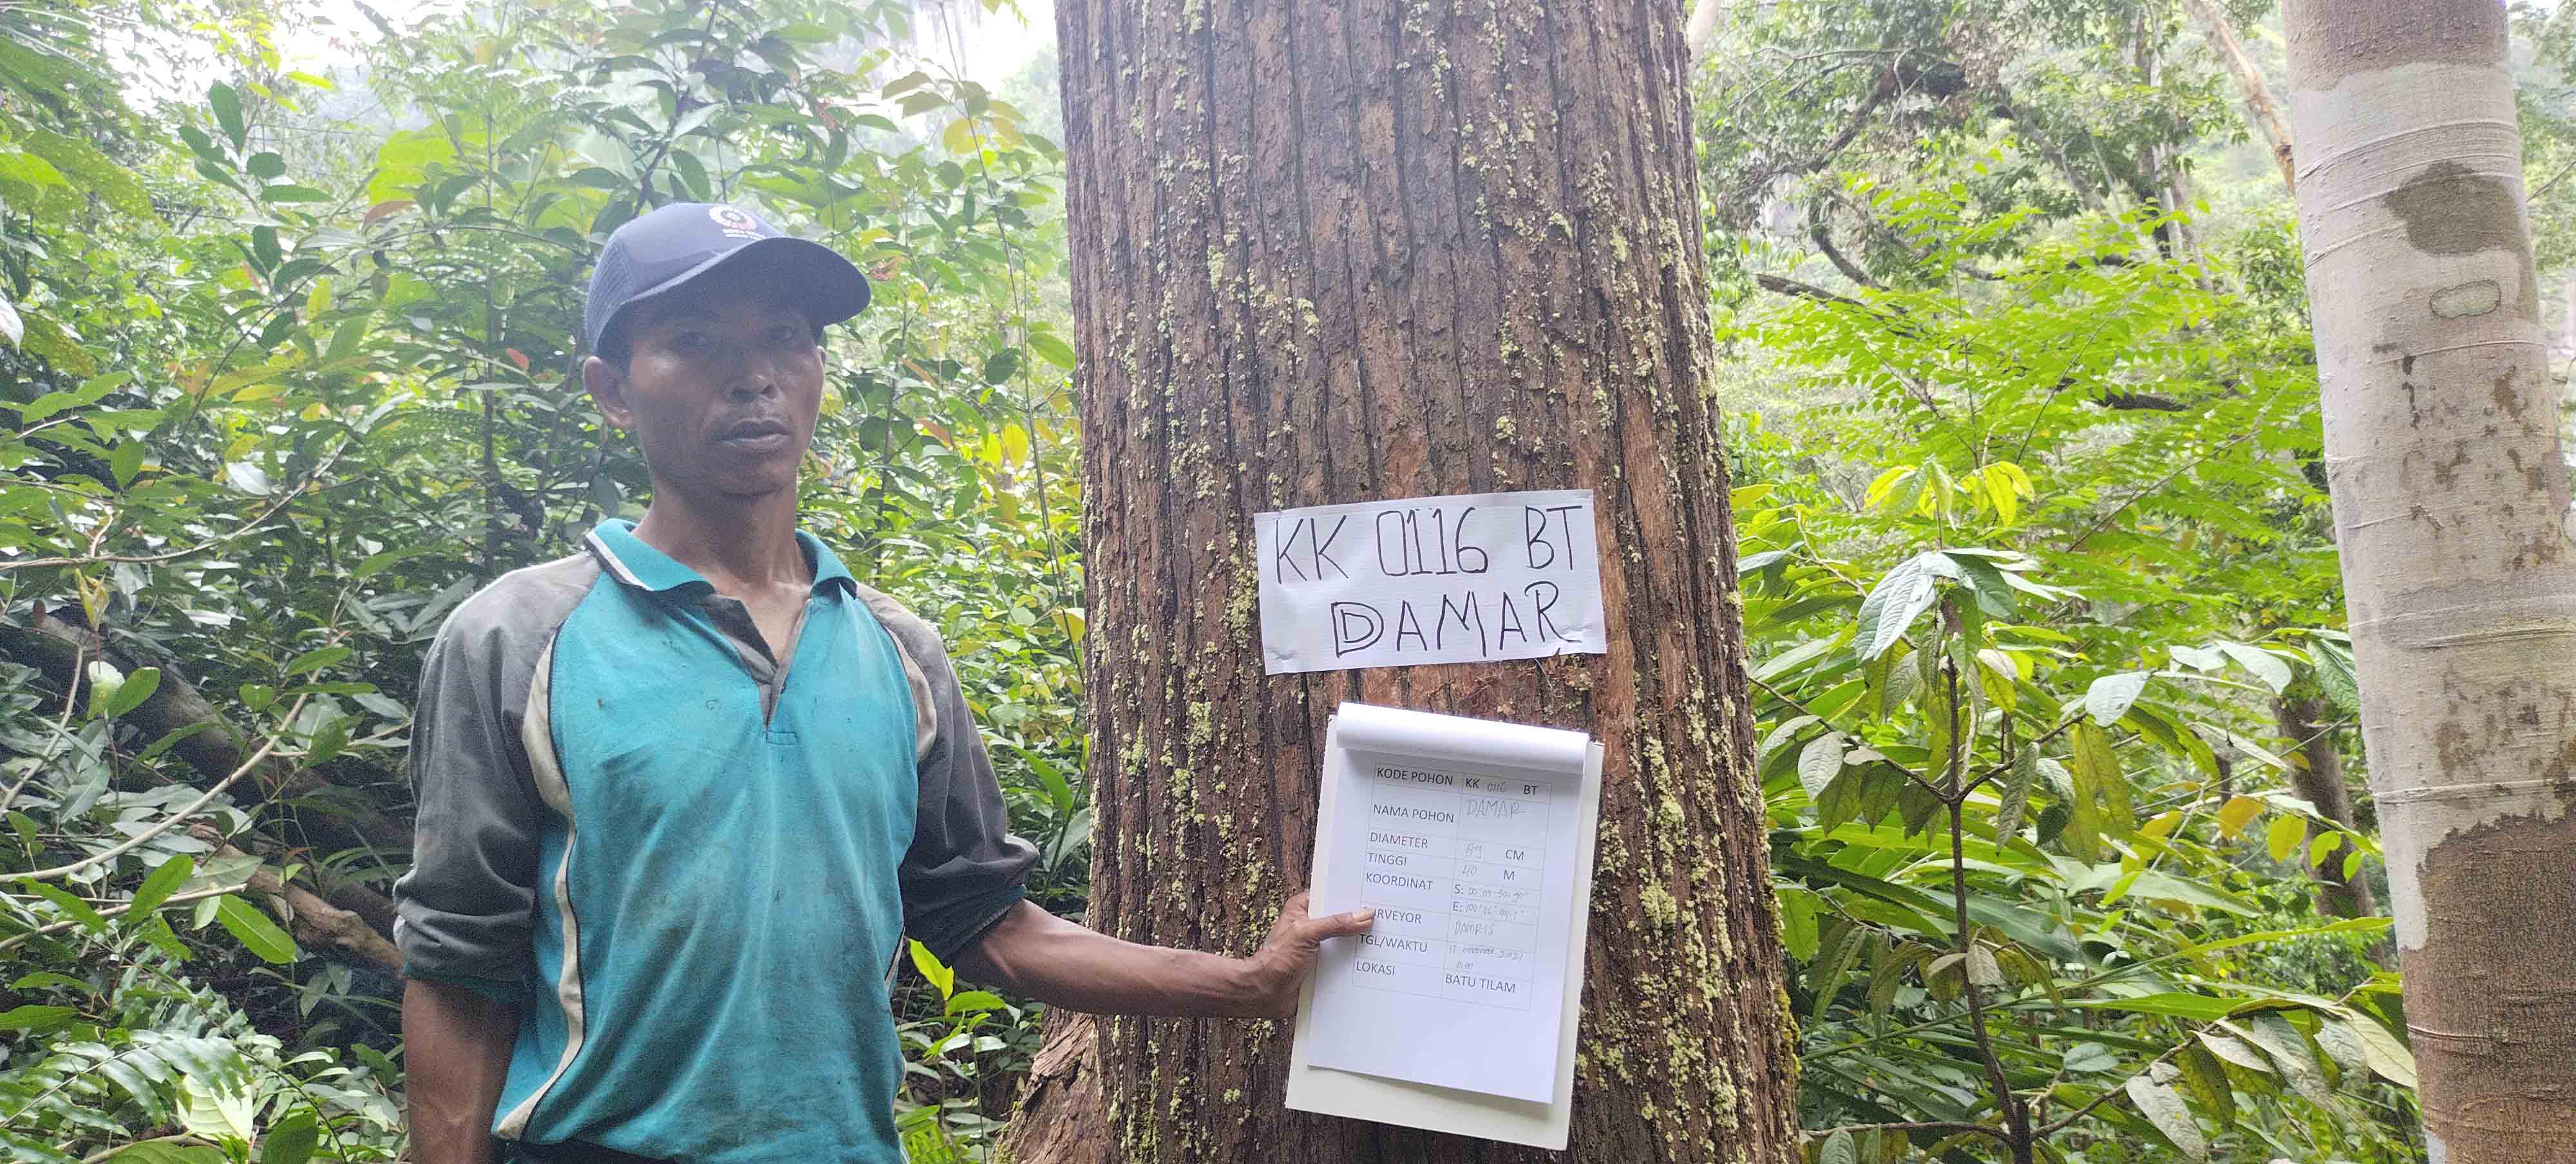 KK 0116 BT
DAMAR
KODE POHON KK 0116 BT
NAMA POHON DAMAR
DIAMETER 89 CM
TINGGI 40 M
KOORDINAT S:
E:
SURVEYOR DAMRIS
TGL/WAKTU 17 NOVEMBER 2021
LOKASI BATU TILAM